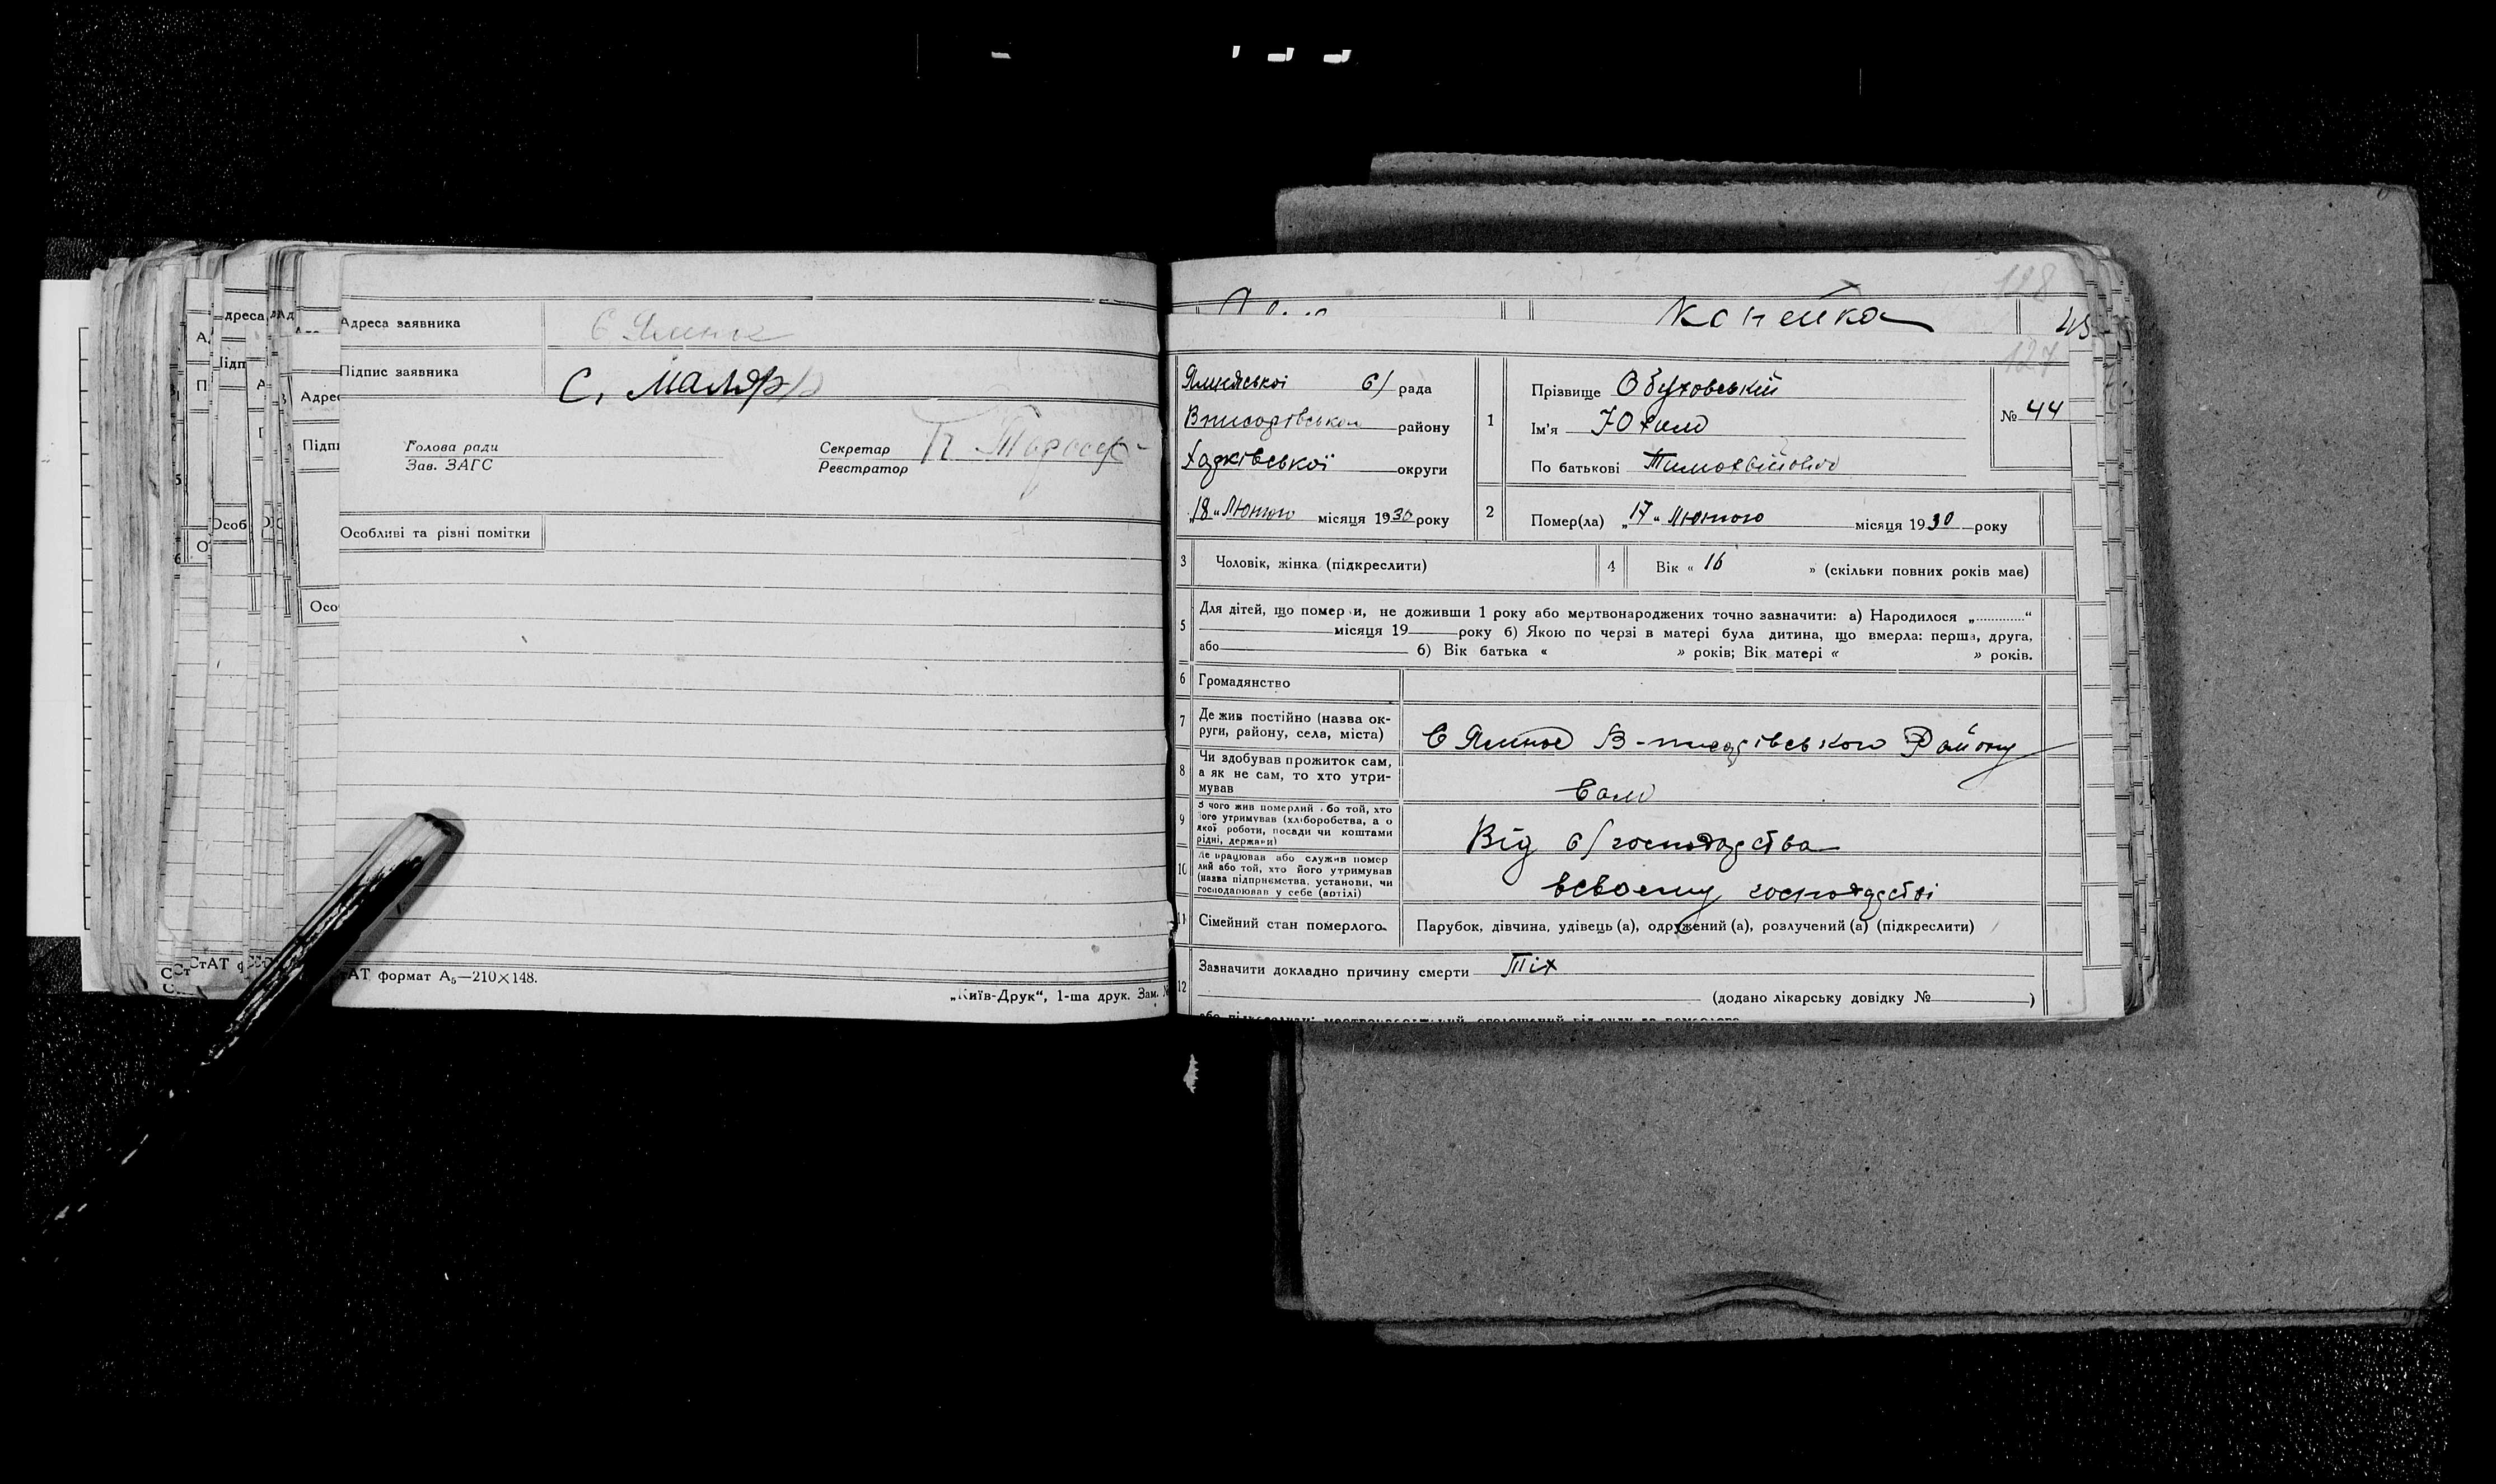 Адреса заявника
Підпис заявника
С. Маляр
Голова ради
Зав. ЗАГС
Секретар
Реєстратор
П.
Особливі та різні помітки
АТ формат А₅—210×148.
„Київ-Друк“, 1-ша друк. Зам. №
128
Копейка
45
127
с/ рада
району
Харківської округи
„18“ Лютого місяця 1930 року
1
Прізвище Обуховський
Ім'я Юхим
По батькові Тимохвійович
№ 44
2
Помер(ла) „17“ Лютого місяця 1930 року
3 Чоловік, жінка (підкреслити)
4 Вік « 16 » (скільки повних років має)
5 Для дітей, що померли, не доживши 1 року або мертвонароджених точно зазначити: а) Народилося „.............“
місяця 19 року б) Якою по черзі в матері була дитина, що вмерла: перша, друга,
або б) Вік батька « » років; Вік матері « » років.
6 Громадянство
7 Де жив постійно (назва ок-
руги, району, села, міста)
С Ямное В-писарівського Району
8 Чи здобував прожиток сам,
а як не сам, то хто утри-
мував
Сам
9 З чого жив померлий або той, хто
його утримував (хліборобства, а о
якої роботи, посади чи коштами
рідні, держави)
Від с/господарства
10 Де працював або служив помер
лий або той, хто його утримував
(назва підприємства, установи, чи
господарював у себе (артілі)
всвоему господарстві
11 Сімейний стан померлого
Парубок, дівчина, удівець (а), одружений (а), розлучений (а) (підкреслити)
12 Зазначити докладно причину смерти Тіх
(додано лікарську довідку № )